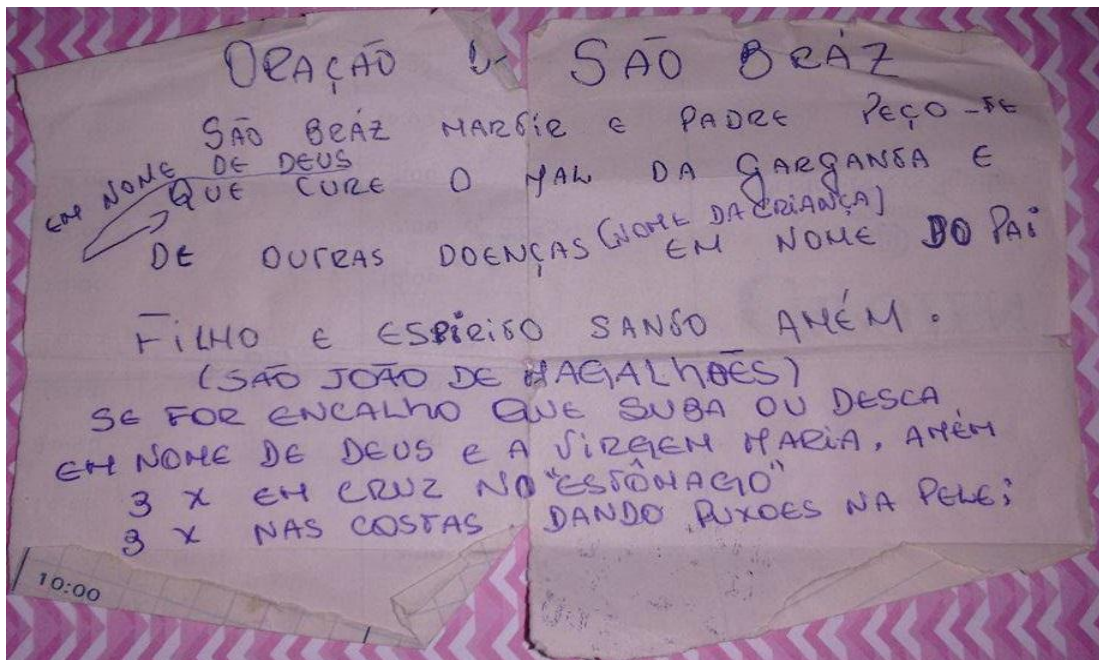 ORAÇÃO D SÃO BRÁZ
SÃO BRÁZ MARTIR E PADRE PEÇO-TE
EM NOME DE DEUS
QUE CURE O MAL DA GARGANTA E
(NOME DA CRIANÇA)
DE OUTRAS DOENÇAS EM NOME DO PAI
FILHO E ESPÍRITO SANTO AMÉM.
(SÃO JOÃO DE MAGALHÃES)
SE FOR ENCALHO QUE SUBA OU DESCA,
EM NOME DE DEUS E A VIRGEM MARIA, AMÉM
3 X EM CRUZ NO "ESTÔMAGO"
3 X NAS COSTAS DANDO PUXOES NA PELE;
10:00